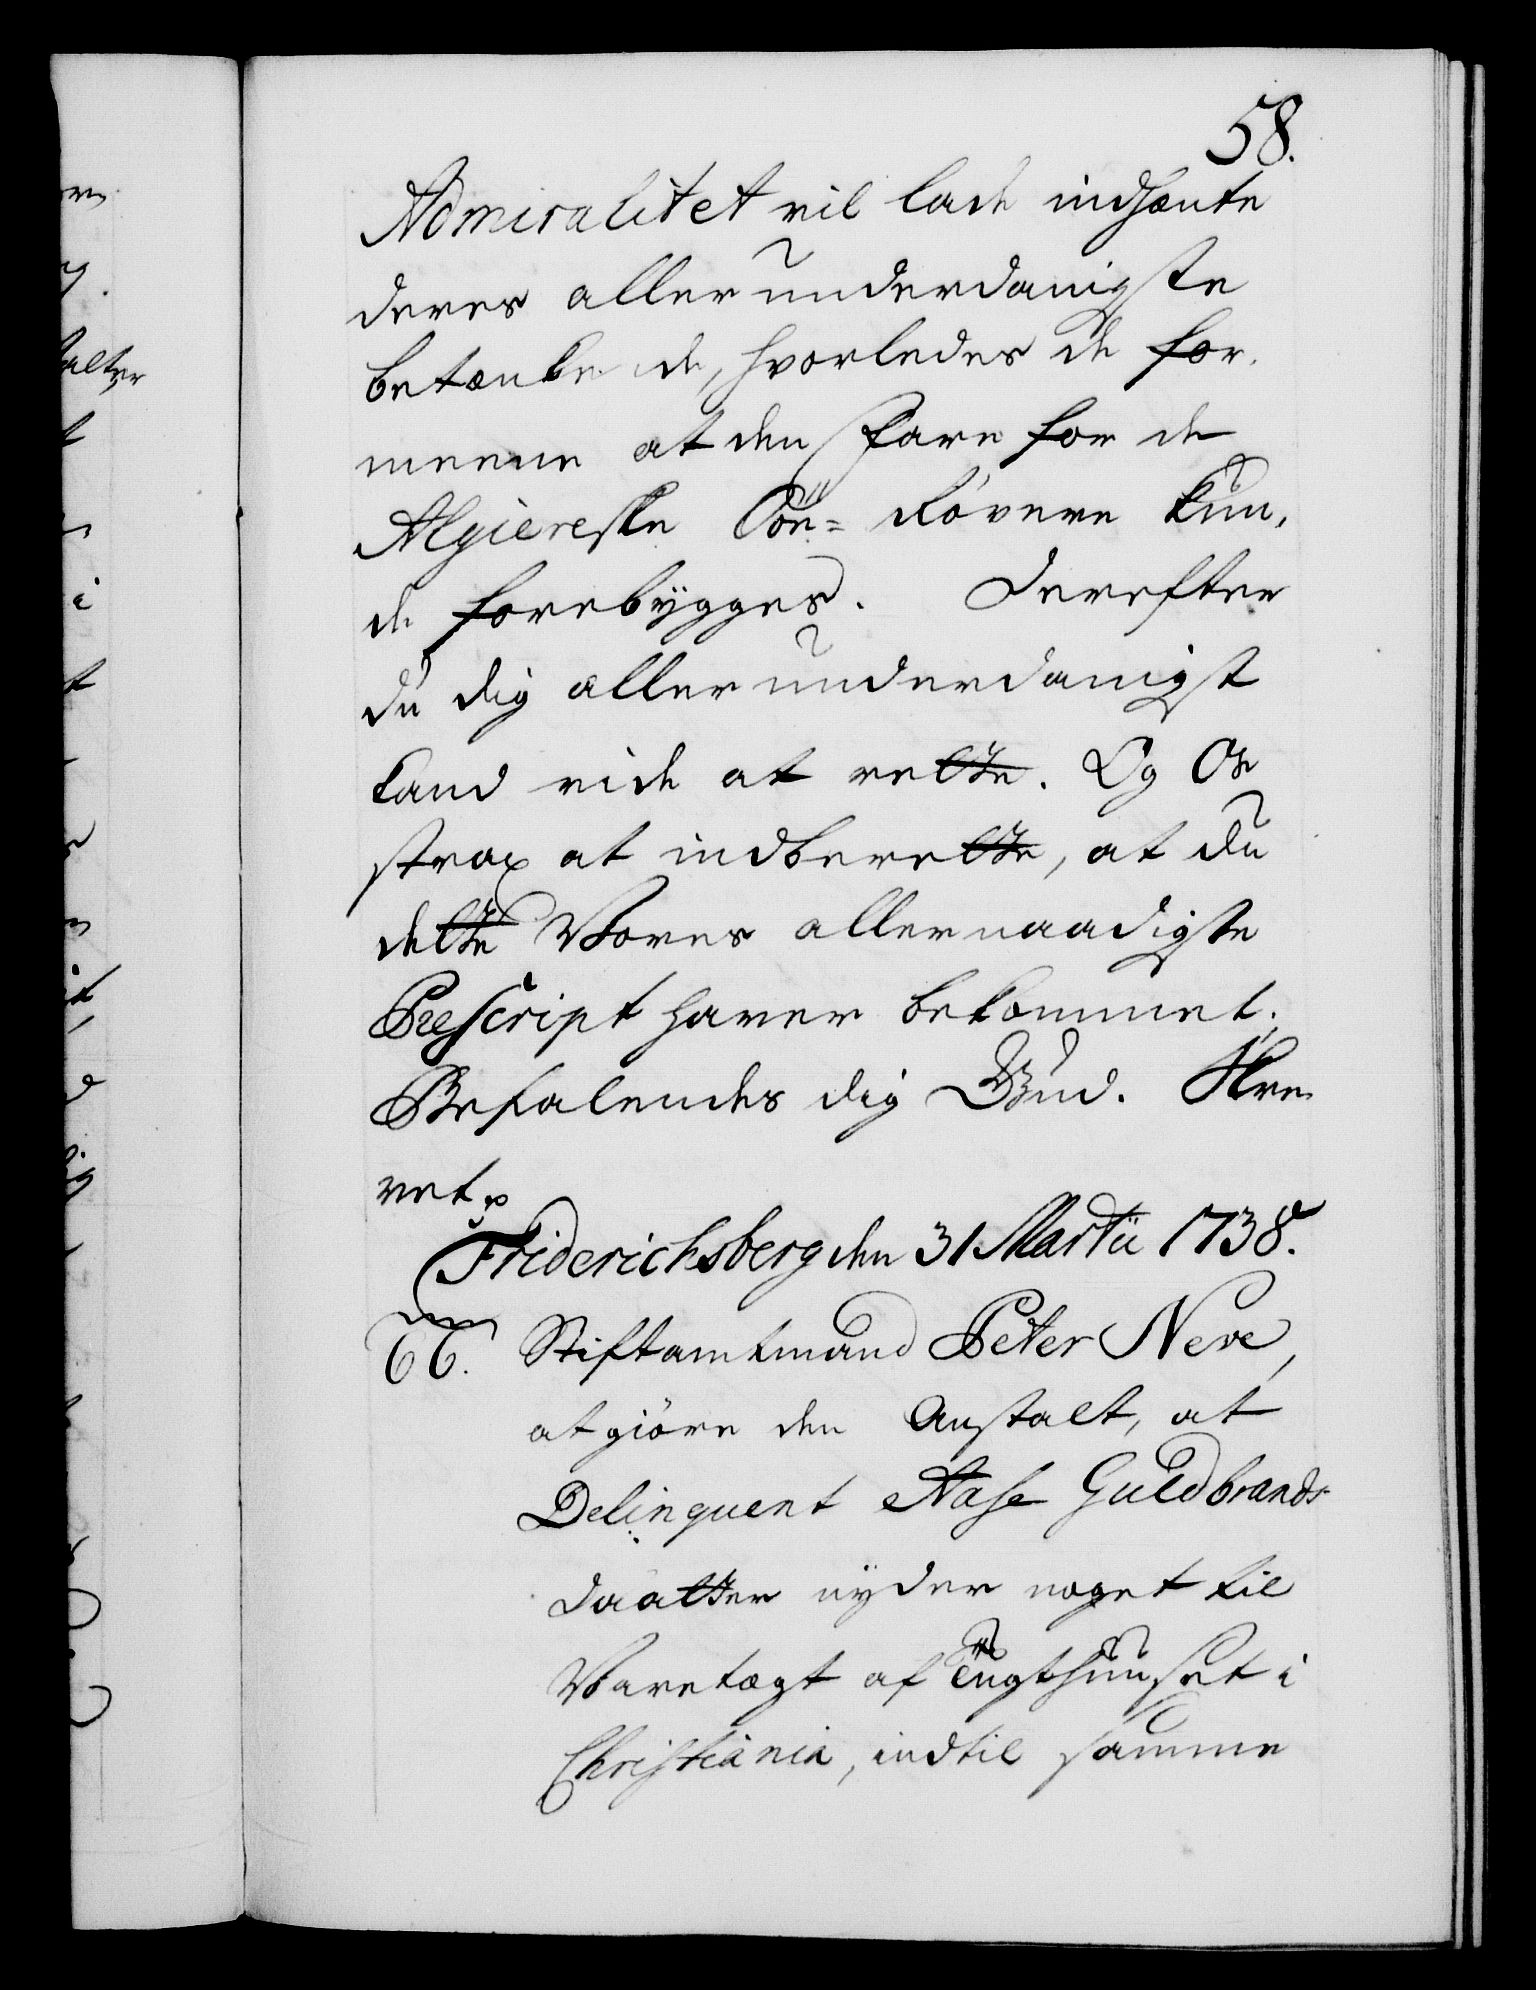 58.
Admiralitet vil lade indhænte
deres allerunderdanigste
betænkende, hvorledes de for,
meene at den Fare for de
Algiereske Söe= Røvere kun,
de forebygges. Derefter
du dig allerunderdanigst
kand vide at rette. Og
strax at indberette, at du
dette Vores allernaadigste
Rescript haver bekommet.
Befalendes dig Gud. Skre
vet
Friderichsberg den 31 Martii 1738.
Stiftamtmand Peter Neve,
at giöre den Anstalt, at
Delinquent Aase Guldbrands
daatter nyder noget til
Varetægt af Tugthuuset i
Christiania, indtil samme